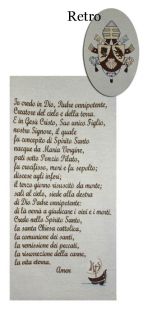 Retro
Io credo in Dio, Padre onnipotente,
Creatore del cielo e della terra.
E in Gesù Cristo, Suo unico Figlio,
nostro Signore, il quale
fu concepito di Spirito Santo
nacque da Maria Vergine,
patì sotto Ponzio Pilato,
fu crocifisso, morì e fu sepolto;
discese agli inferi;
il terzo giorno risuscitò da morte;
salì al cielo, siede alla destra
di Dio Padre onnipotente:
di là verrà a giudicare i vivi e i morti.
Credo nello Spirito Santo,
la santa Chiesa cattolica,
la comunione dei santi,
la remissione dei peccati,
la risurrezione della carne,
la vita eterna.
Amen